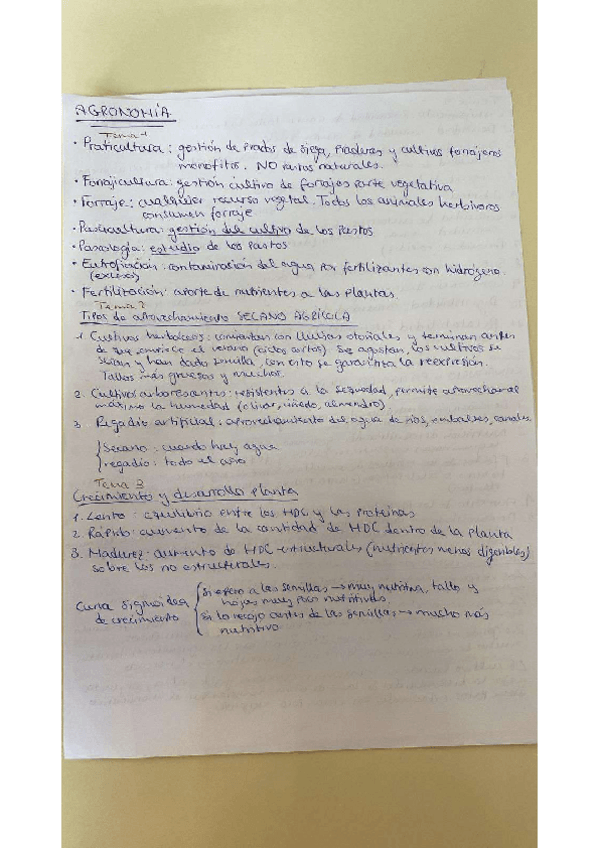 AGRONOMÍA
Tema 1
• Praticultura: gestión de prados de siega, praderas y cultivos forrajeros
monofitos. NO pastos naturales.
• Forrajicultura: gestión cultivo de forrajes parte vegetativa
• Forraje: cualquier recurso vegetal. Todos los animales herbívoros
consumen forraje
• Pascicultura: gestión del cultivo de los Pastos
• Pascología: estudio de los Pastos
• Eutrofización: contaminación del agua por fertilizantes con hidrógeno.
(exceso)
• Fertilización: aporte de nutrientes a las plantas.
Tema 2
Tipos de aprovechamiento SECANO AGRÍCOLA
1. Cultivos herbáceos: comienzan con lluvias otoñales y terminan antes
de que empiece el verano (ciclos cortos). Se agostan, los cultivos se
secan y han dado semilla, con esto se garantiza la reexpresión.
Tallos más gruesos y muchos.
2. Cultivos arborescentes: resistentes a la sequedad, permite aprovechar al
máximo la humedad (olivar, viñedo, almendro).
3. Regadío artificial: aprovechamiento del agua de ríos, embalses, canales.
Secano: cuando hay agua
regadío: todo el año
Tema 3
Crecimiento y desarrollo planta
1. Lento: equilibrio entre los HDC y las proteínas
2. Rápido: aumento de la cantidad de HDC dentro de la planta
3. Madurez: aumento de HDC estructurales (nutrientes menos digestibles)
sobre los no estructurales.
Curva sigmoidea
de crecimiento
si espero a las semillas → muy nutritiva, tallo y
hojas muy poco nutritivos
si lo recojo antes de las semillas → mucho más
nutritivo